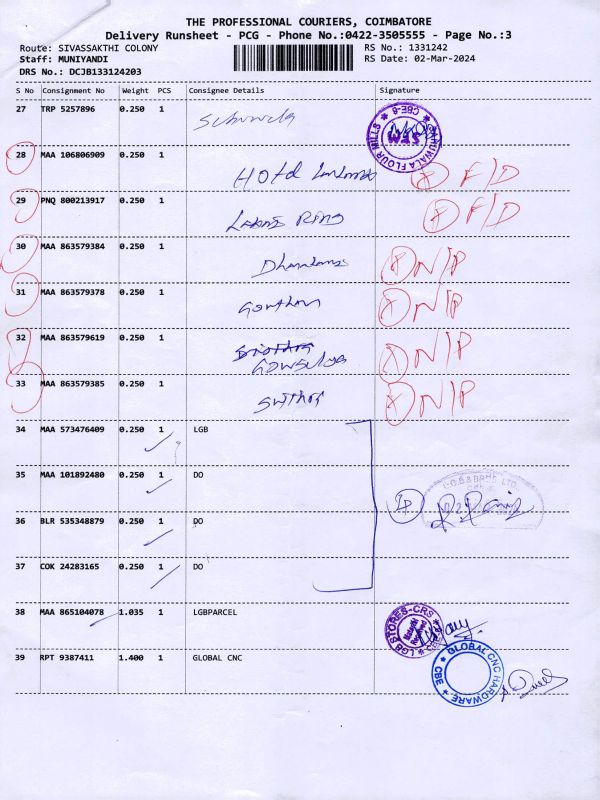 THE PROFESSIONAL COURIERS, COIMBATORE
Delivery Runsheet - PCG - Phone No.:0422-3505555 - Page No.:3
Route: SIVASSAKTHI COLONY RS No.: 1331242
Staff: MUNIYANDI RS Date: 02-Mar-2024
DRS No.: DCJB133124203
S No Consignment No Weight PCS Consignee Details Signature
27 TRP 5257896 0.250 1
CBE-6
SFM
FLOUR MILLS
28 MAA 106806909 0.250 1 Hotel F/D
29 PNQ 800213917 0.250 1 F/D
30 MAA 863579384 0.250 1 N/P
31 MAA 863579378 0.250 1 Gowtham N/P
32 MAA 863579619 0.250 1 N/P
33 MAA 863579385 0.250 1 N/P
34 MAA 573476409 0.250 1 LGB
35 MAA 101892480 0.250 1 DO
L.G.B & BROS. LTD.
36 BLR 535348879 0.250 1 DO
37 COK 24283165 0.250 1 DO
38 MAA 865104078 1.035 1 LGBPARCEL
LGB STORES-CRS
39 RPT 9387411 1.400 1 GLOBAL CNC
GLOBAL CNC HARDWARE
CBE